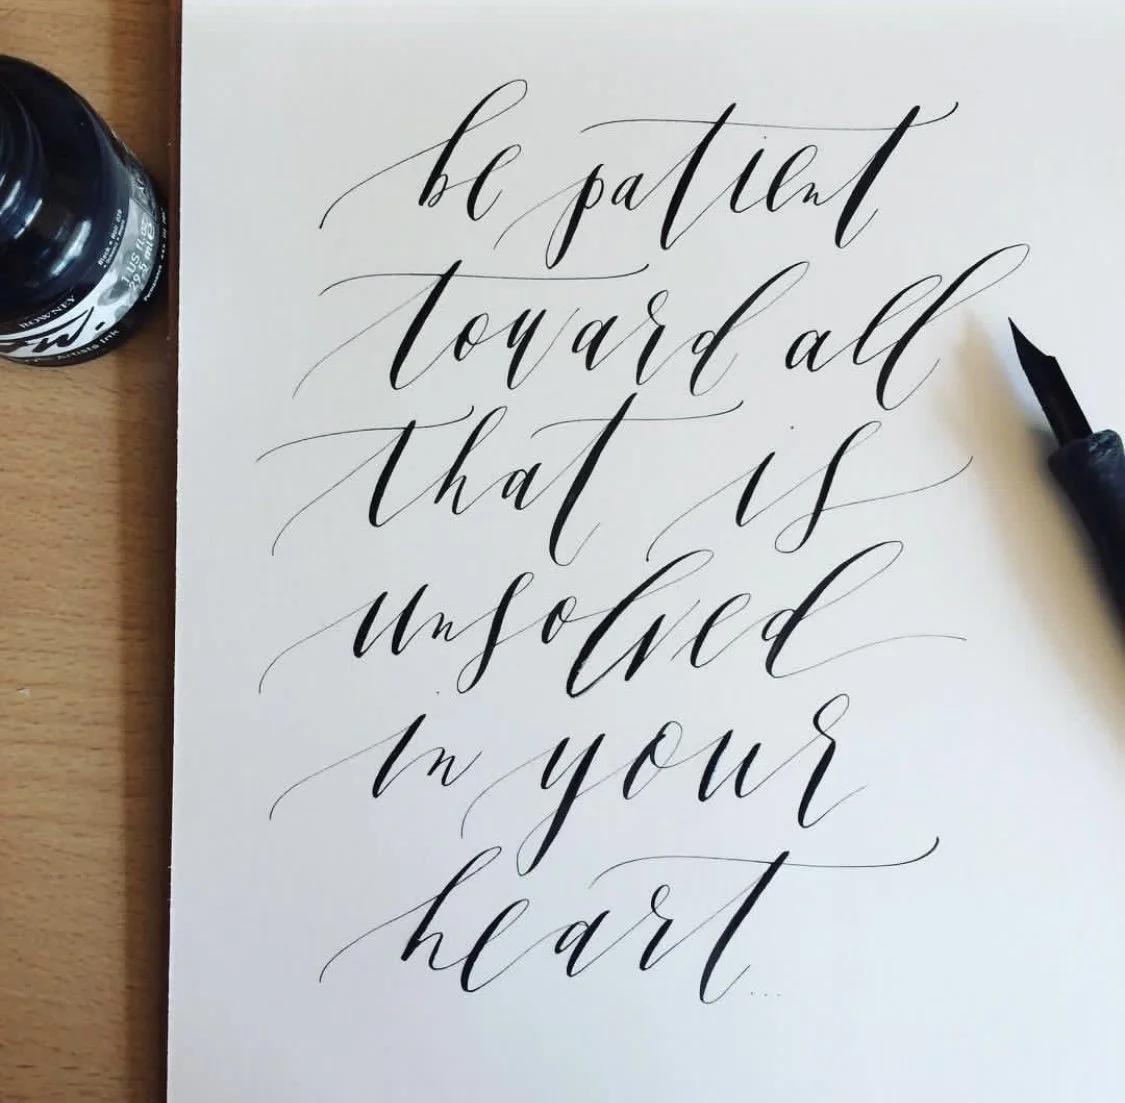 be patient
toward all
that is
unsolved
in your
heart...
ROWNEY
Artists Ink
1 US fl. oz
29.5 ml e